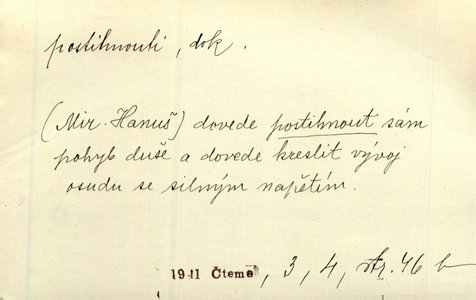 postihnouti, dok.
(Mir. Hanuš) dovede postihnout sám
pohyb duše a dovede kreslit vývoj
osudu se silným napětím.
1941 Čteme, 3, 4, str. 46 b